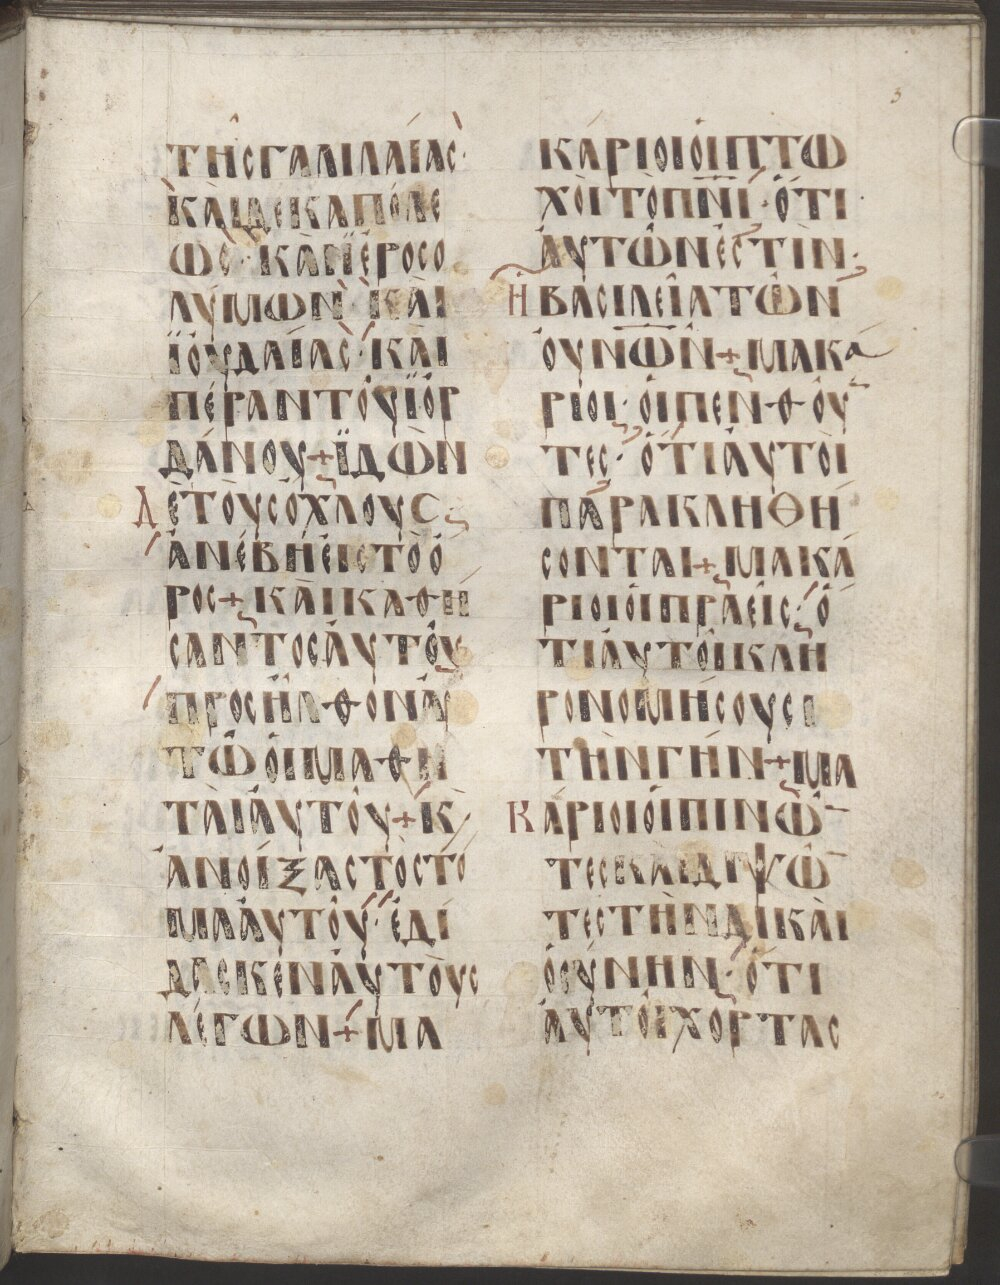 3
ΤΗϹΓΑΛΙΛΑΊΑϹ·
ΚΑῚΔΕΚΑΠΌΛΕ
ΩϹ· ΚΑῚἹΕΡΟϹΟ
ΛΎΜΩΝ· ΚΑῚ
ἸΟΥΔΑΊΑϹ· ΚΑῚ
ΠΈΡΑΝΤΟΥ͂ἸΟΡ
ΔΆΝΟΥ + ἸΔῺΝ
ΔΕΤΟῪϹὌΧΛΟΥϹ
ἈΝΈΒΗΕἸϹΤῸὌ
ΡΟϹ + ΚΑῚΚΑΘΗ
ϹΑΝΤΟϹΑΥΤΟΥ͂
ΠΡΟϹΗ͂ΛΘΟΝΑΥ
ΤΩ͂ΟἹΜΑΘΗ
ΤΑῚΑΥΤΟΥ͂ + Κ
ἈΝΟΊΞΑϹΤῸϹΤΟ
ΜΑΑΥΤΟΥ͂· ἘΔΊ
ΔΑϹΚΕΝΑΥΤΟῪϹ
ΛΈΓΩΝ + ΜΑ
ΚΆΡΙΟΙΟἹΠΤΩ
ΧΟῚΤΩΠΝΙ· ὍΤΙ
ΑΥΤΩ͂ΝΕϹΤῚΝ·
ΗΒΑϹΙΛΕΊΑΤΩ͂Ν
ΟΥΝΩΝ + ΜΑΚΑ
ΡΙΟΙ· ΟἹΠΕΝΘΟΥ͂
ΤΕϹ· ὍΤΙΑΥΤΟῚ
ΠΑΡΑΚΛΗΘΗ
ϹΟΝΤΑΙ + ΜΑΚΆ
ΡΙΟΙΟἹΠΡΑΕΙ͂Ϲ· Ὅ
ΤΙΑΥΤΟῚΚΛΗ
ΡΟΝΟΜΉϹΟΥϹΙ
ΤῊΝΓΗ͂Ν + ΜΑ
ΚΆΡΙΟΙΟἹΠΙΝΩ͂
ΤΕϹΚΑῚΔΙΨΩ͂
ΤΕϹΤῊΝΔΙΚΑΙ
ΟϹΎΝΗΝ· ὍΤΙ
ΑΥΤΟῚΧΟΡΤΑϹ